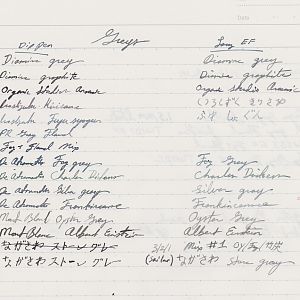 Greys
Dip Pen Lamy EF
Diamine grey Diamine grey
Diamine graphite Diamine graphite
Organic Studio Organic Studio
Iroshizuku Kirisame いろしずく きりさめ
Iroshizuku Fuyu-syogun ふゆ しょぐん
PR Grey Flannel
Fog + Flannel Mix
De Atramentis Fog grey Fog Grey
De Atramentis Charles Dickens Charles Dickens
De Atramentis Silver grey Silver gray
De Atramentis Frankincense Frankincense
Mont Blanc Oyster Grey Oyster Grey
Mont Blanc Albert Einstein Albert Einstein
ながさわ ストーン グレー 3/2/1 Mix #1
ながさわ ストーン グレー ながさわ Stone gray